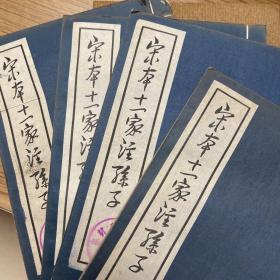 宋本十一家注孫子
宋本十一家注孫子
宋本十一家注孫子
宋本十一家注孫子